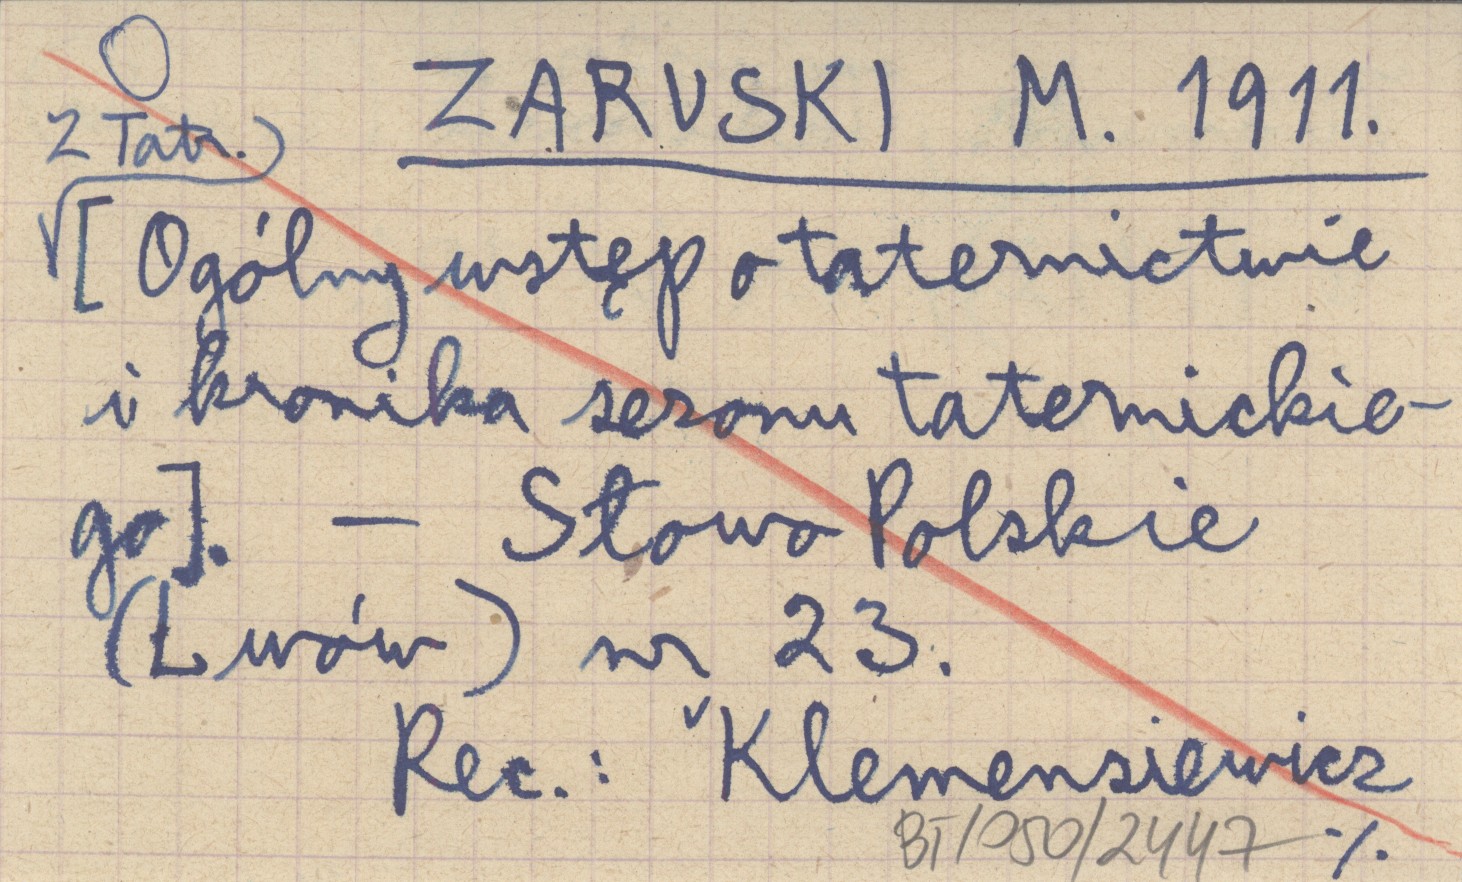 ZARUSKI M. 1911.
Z Tatr.)
[Ogólny wstęp o taternictwie
i kronika sezonu taternickie-
go]. — Słowo Polskie
(Lwów) nr 23.
Rec.: Klemensiewicz
BT/050/2447 ·/.